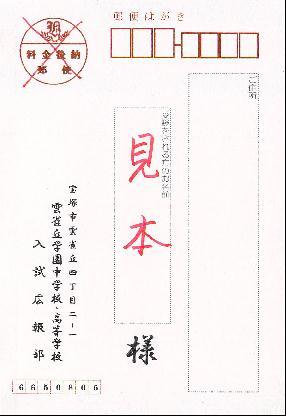 郵便はがき
料金後納
郵便
ご住所
受験をされる方のお名前
見本
様
宝塚市雲雀丘四丁目二−一
雲雀丘学園中学校・高等学校
入試広報部
6650805